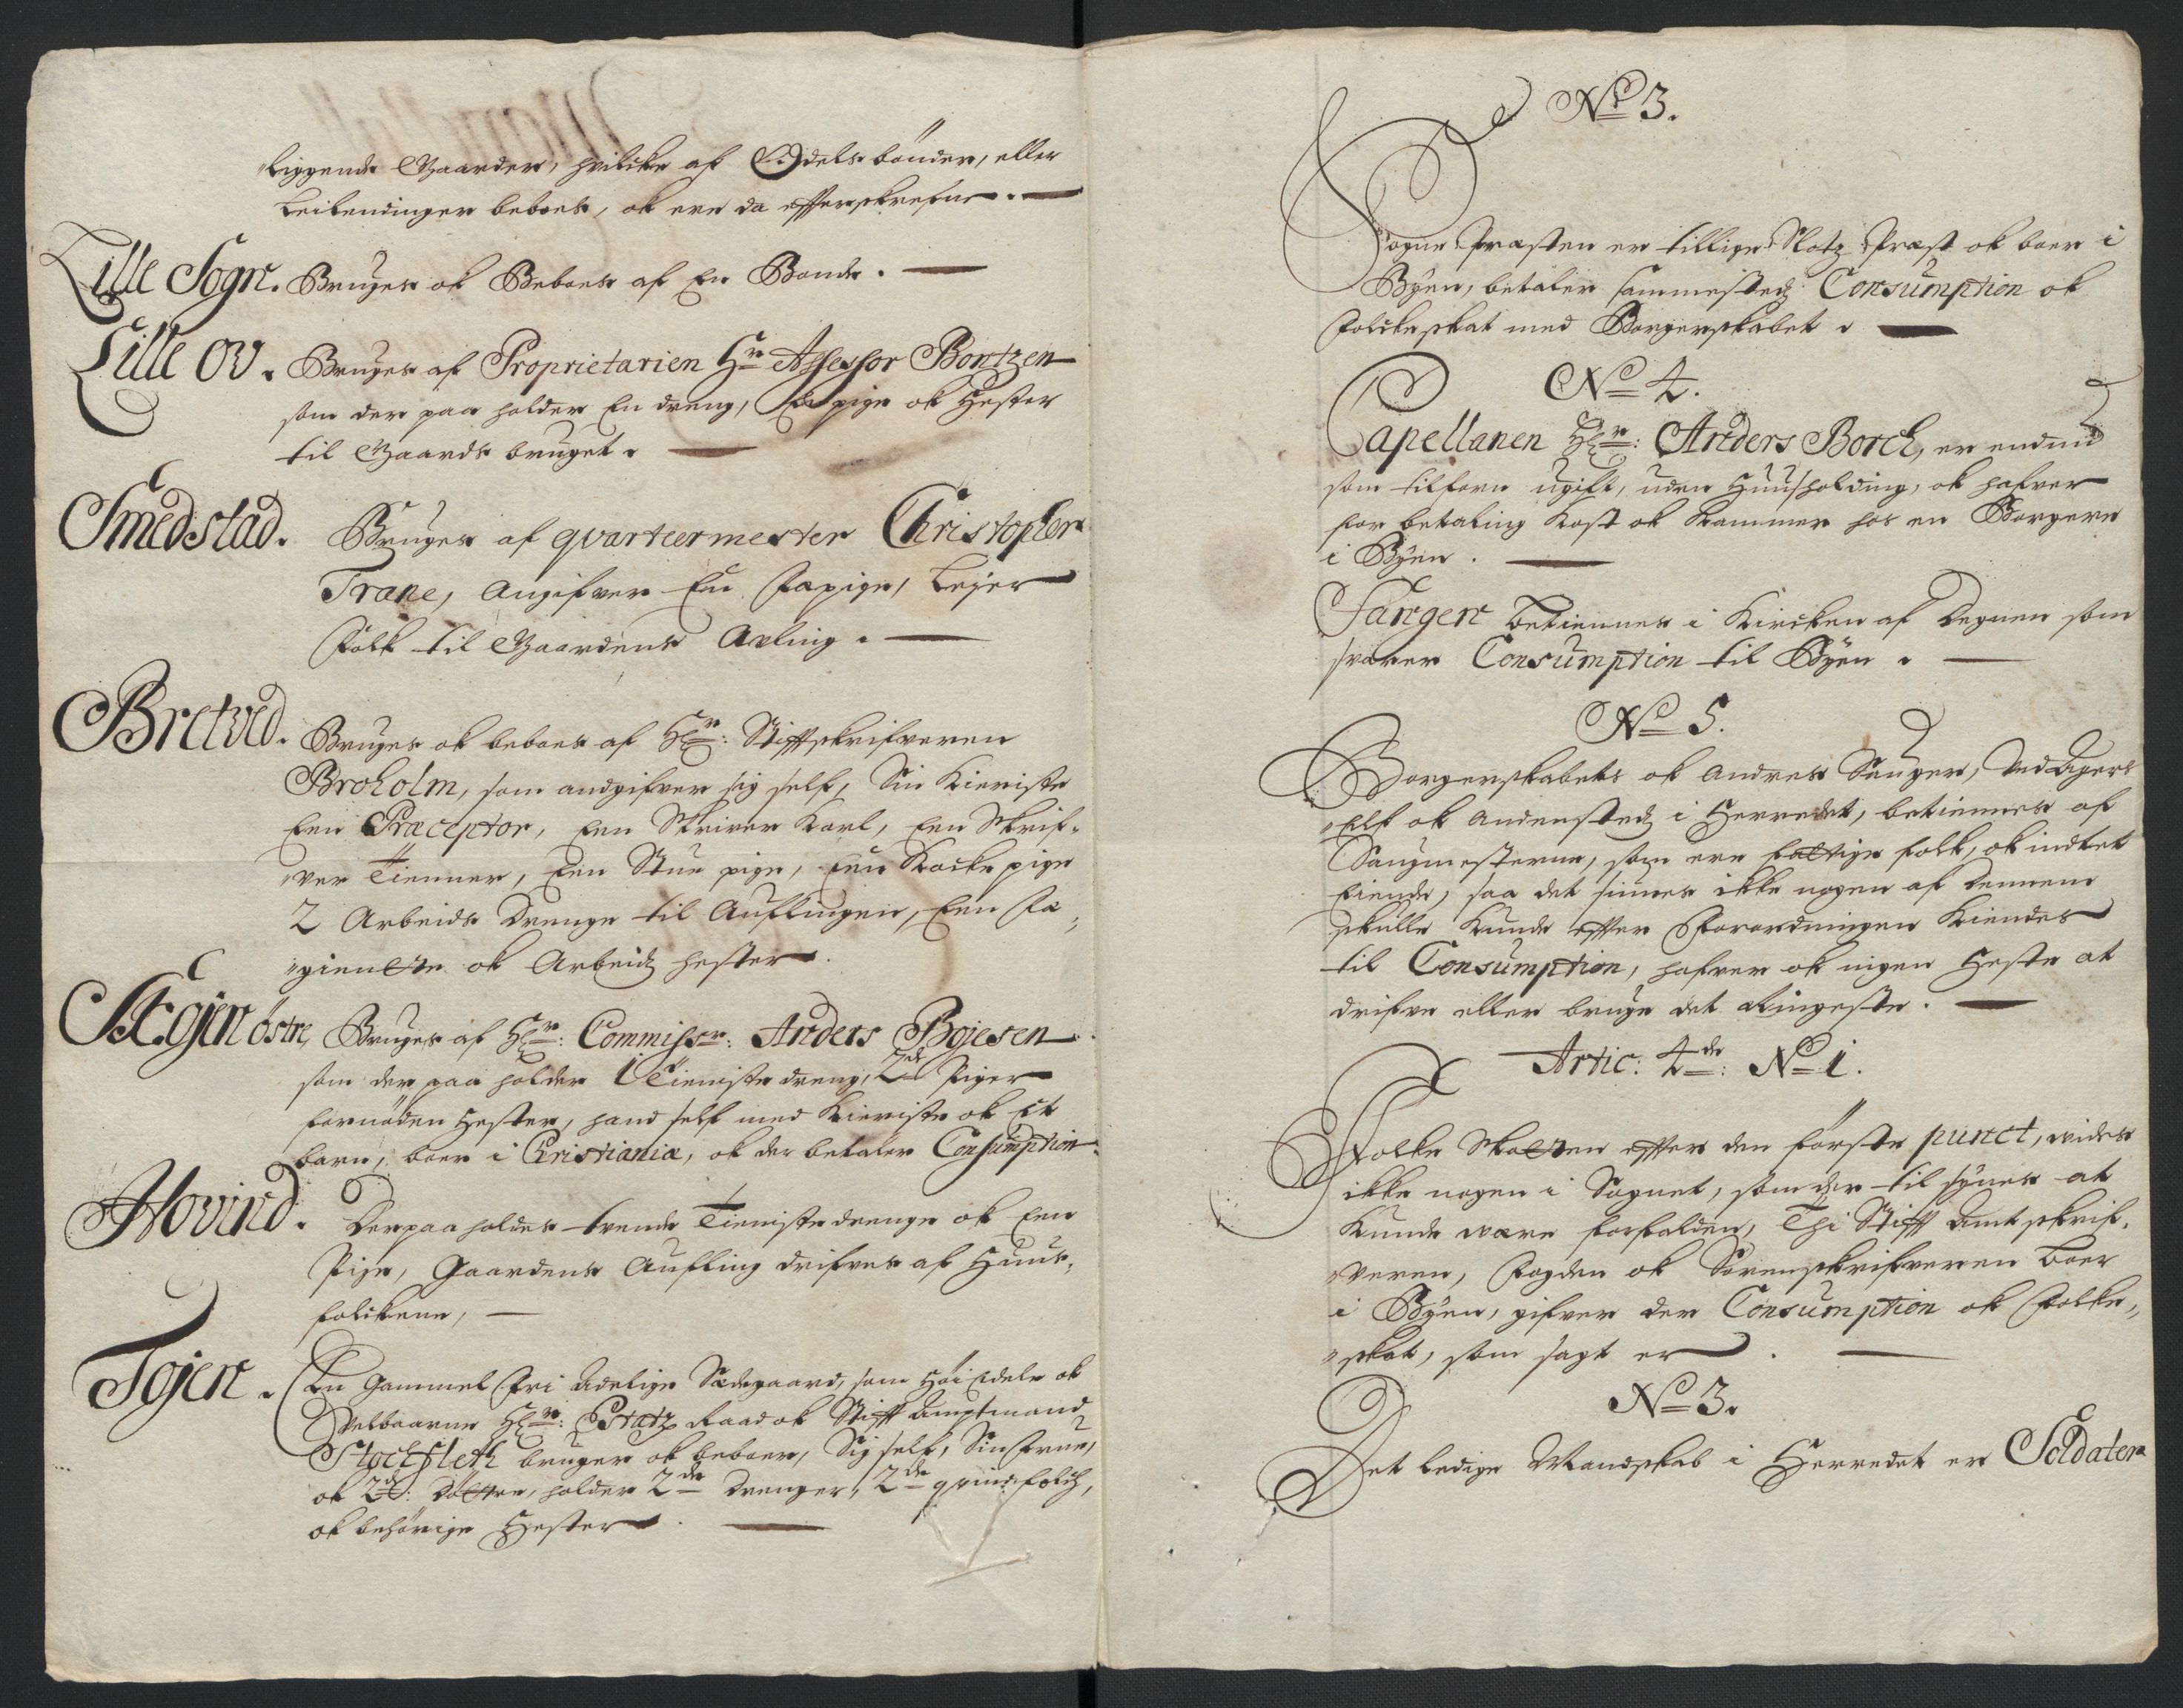 liggende Gaarder, hvilcke af Odels bönder, eller
Leilendinger beboes, ok ere da efterskrefne.
Lille Sogn. Bruges ok Beboes af En Bonde.
Lille OV. Bruges af Proprietarien Hr Assessor Bontzen
som der paa holder En dreng, En pige ok Hester
til Gaards bruget.
Smedstad. Bruges af qvarteermester Christopher
Trane, Angifver En Fæpige, Lejer
Folk til Gaardens Avling.
Bretved. Bruges ok beboes af Hr: Stifftskrifveren
Broholm, som andgifver sig self, Sin Kieriste
Een Præceptor, Een Skriver Karl, Een Skrif-
ver Tienner, Een Stue pige, Een Kocke pige
2 Arbeids Drenge til Auflingen, Een Fæ-
giente ok Arbeidz hester.
Æ͏gjer östre, Bruges af Hr: Commissr: Anders Bojesen
som der paa holder 1 Tieniste dreng, 2de Piger
fornöden Hester, hand self med Kieriste ok Et
barn, boer i Christiania, ok der betaler Consumption.
Hovind. Derpaa holdes tvende Tieniste drenge ok Een
Pige, Gaardens Aufling drifves af Huus-
folckene,
Tøjen. En Gammel Fri Adelige Sædegaard, som Höi Edele ok
Velbaarne Hr: Etatz Raad ok Stifft Amptmand
Stochfleth bruger ok beboer, Sig self, Sin Frue,
ok 2de: Döttre, holder 2de Drenger, 2de qvindfolch,
ok behörige Hester.
No 3.
Sogne Præsten er tillige Slotz Præst ok boer i
Byen, betaler sammestedz Consumption ok
Folckeskat med Borgerskabet.
No 4.
Capellanen Hr: Anders Borch, er endnu
som tilforn ugift, uden Huusholding, ok hafver
for betaling Kost ok Kammer hos en Borgere
i Byen.
Sangen betiennes i Kircken af Degnen som
svarer Consumption til Byen.
No 5.
Borgerskabets ok Andres Sauger, Ved Agers
Elf ok Andenstedz i Herredet, betiennes af
Saugmesterne, som ere fattige folk, ok indtet
Eiende, saa det siunes ikke nogen af dennem
skulle Kunde efter Forordningen Kiendes
til Consumption, hafver ok ingen Heste at
drifve eller bruge det Ringeste.
Artic: 4de: No 1.
Folke Skatten efter den förste punct, vides
ikke nogen i Sognet, som der til synes at
Kunde være forfalden, Thi Stifft Amtskrif-
veren, Fogden ok Sorenskrifveren boer
i Byen, gifver der Consumption ok Folke-
skat, som sagt er.
No 3.
Det ledige Mandskab i Herredet er Soldater